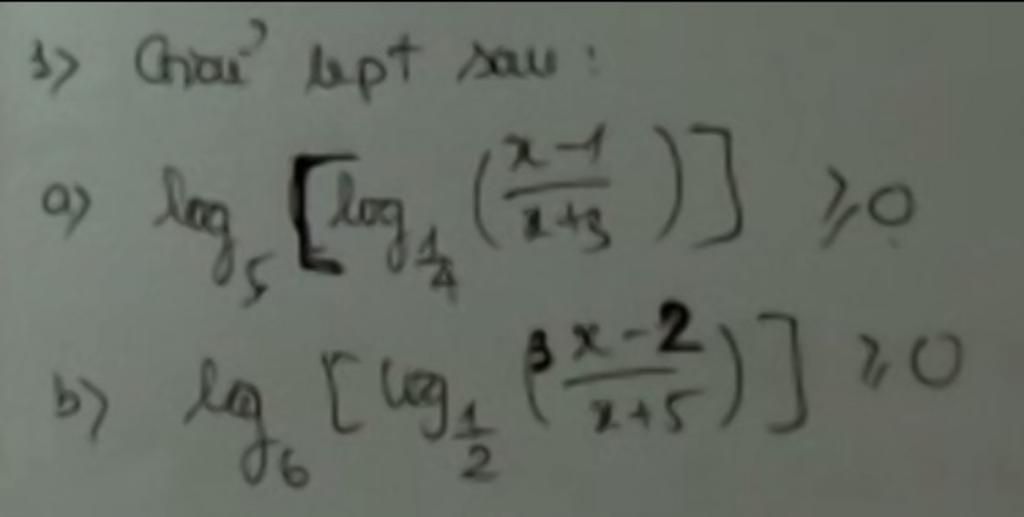 1) Giải bpt sau:
a) log_5 [log_{1/4} ((x-1)/(x+3))] ⩾ 0
b) log_6 [log_{1/2} ((3x-2)/(x+5))] ⩾ 0